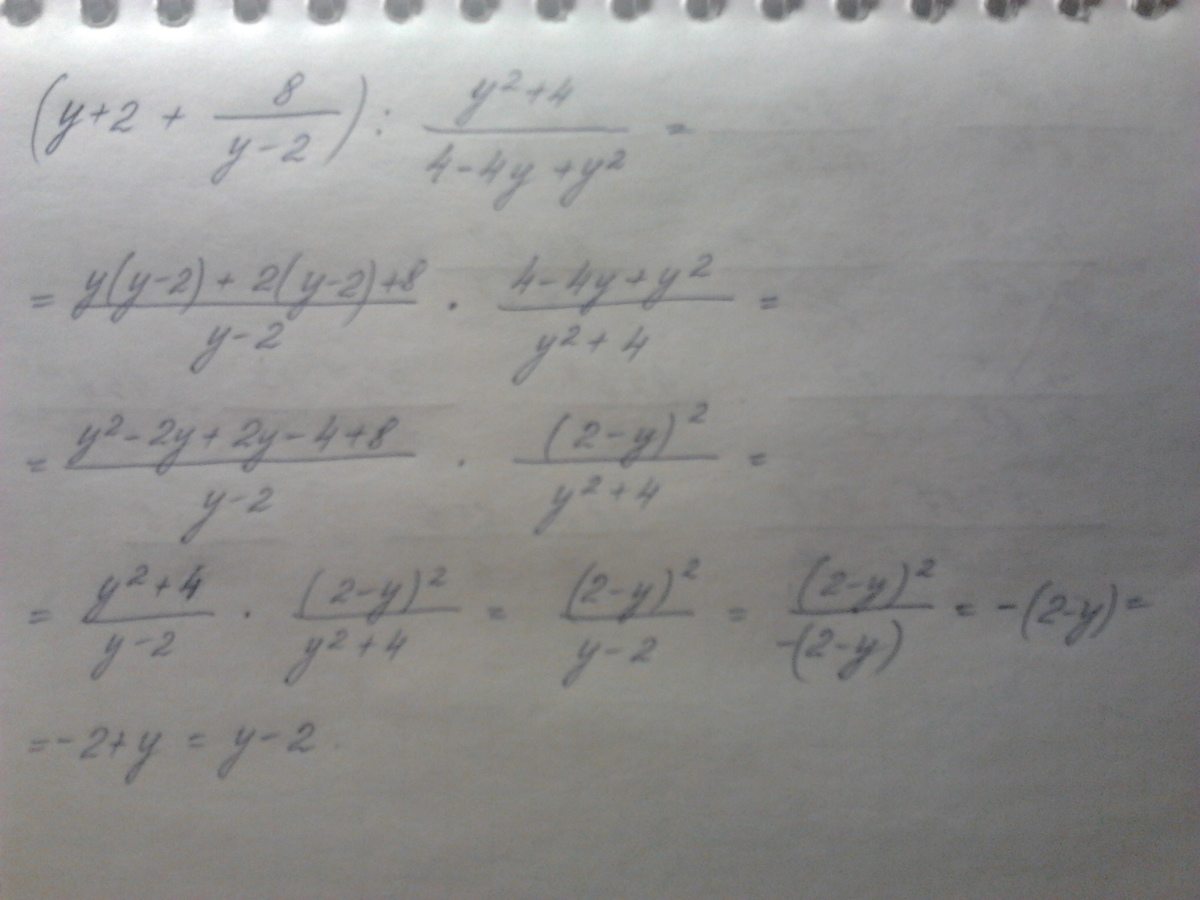 (y+2 + 8/(y-2)) : (y²+4)/(4-4y+y²) =
= (y(y-2)+2(y-2)+8)/(y-2) · (4-4y+y²)/(y²+4) =
= (y²-2y+2y-4+8)/(y-2) · (2-y)²/(y²+4) =
= (y²+4)/(y-2) · (2-y)²/(y²+4) = (2-y)²/(y-2) = (2-y)²/(-(2-y)) = -(2-y) =
= -2+y = y-2.